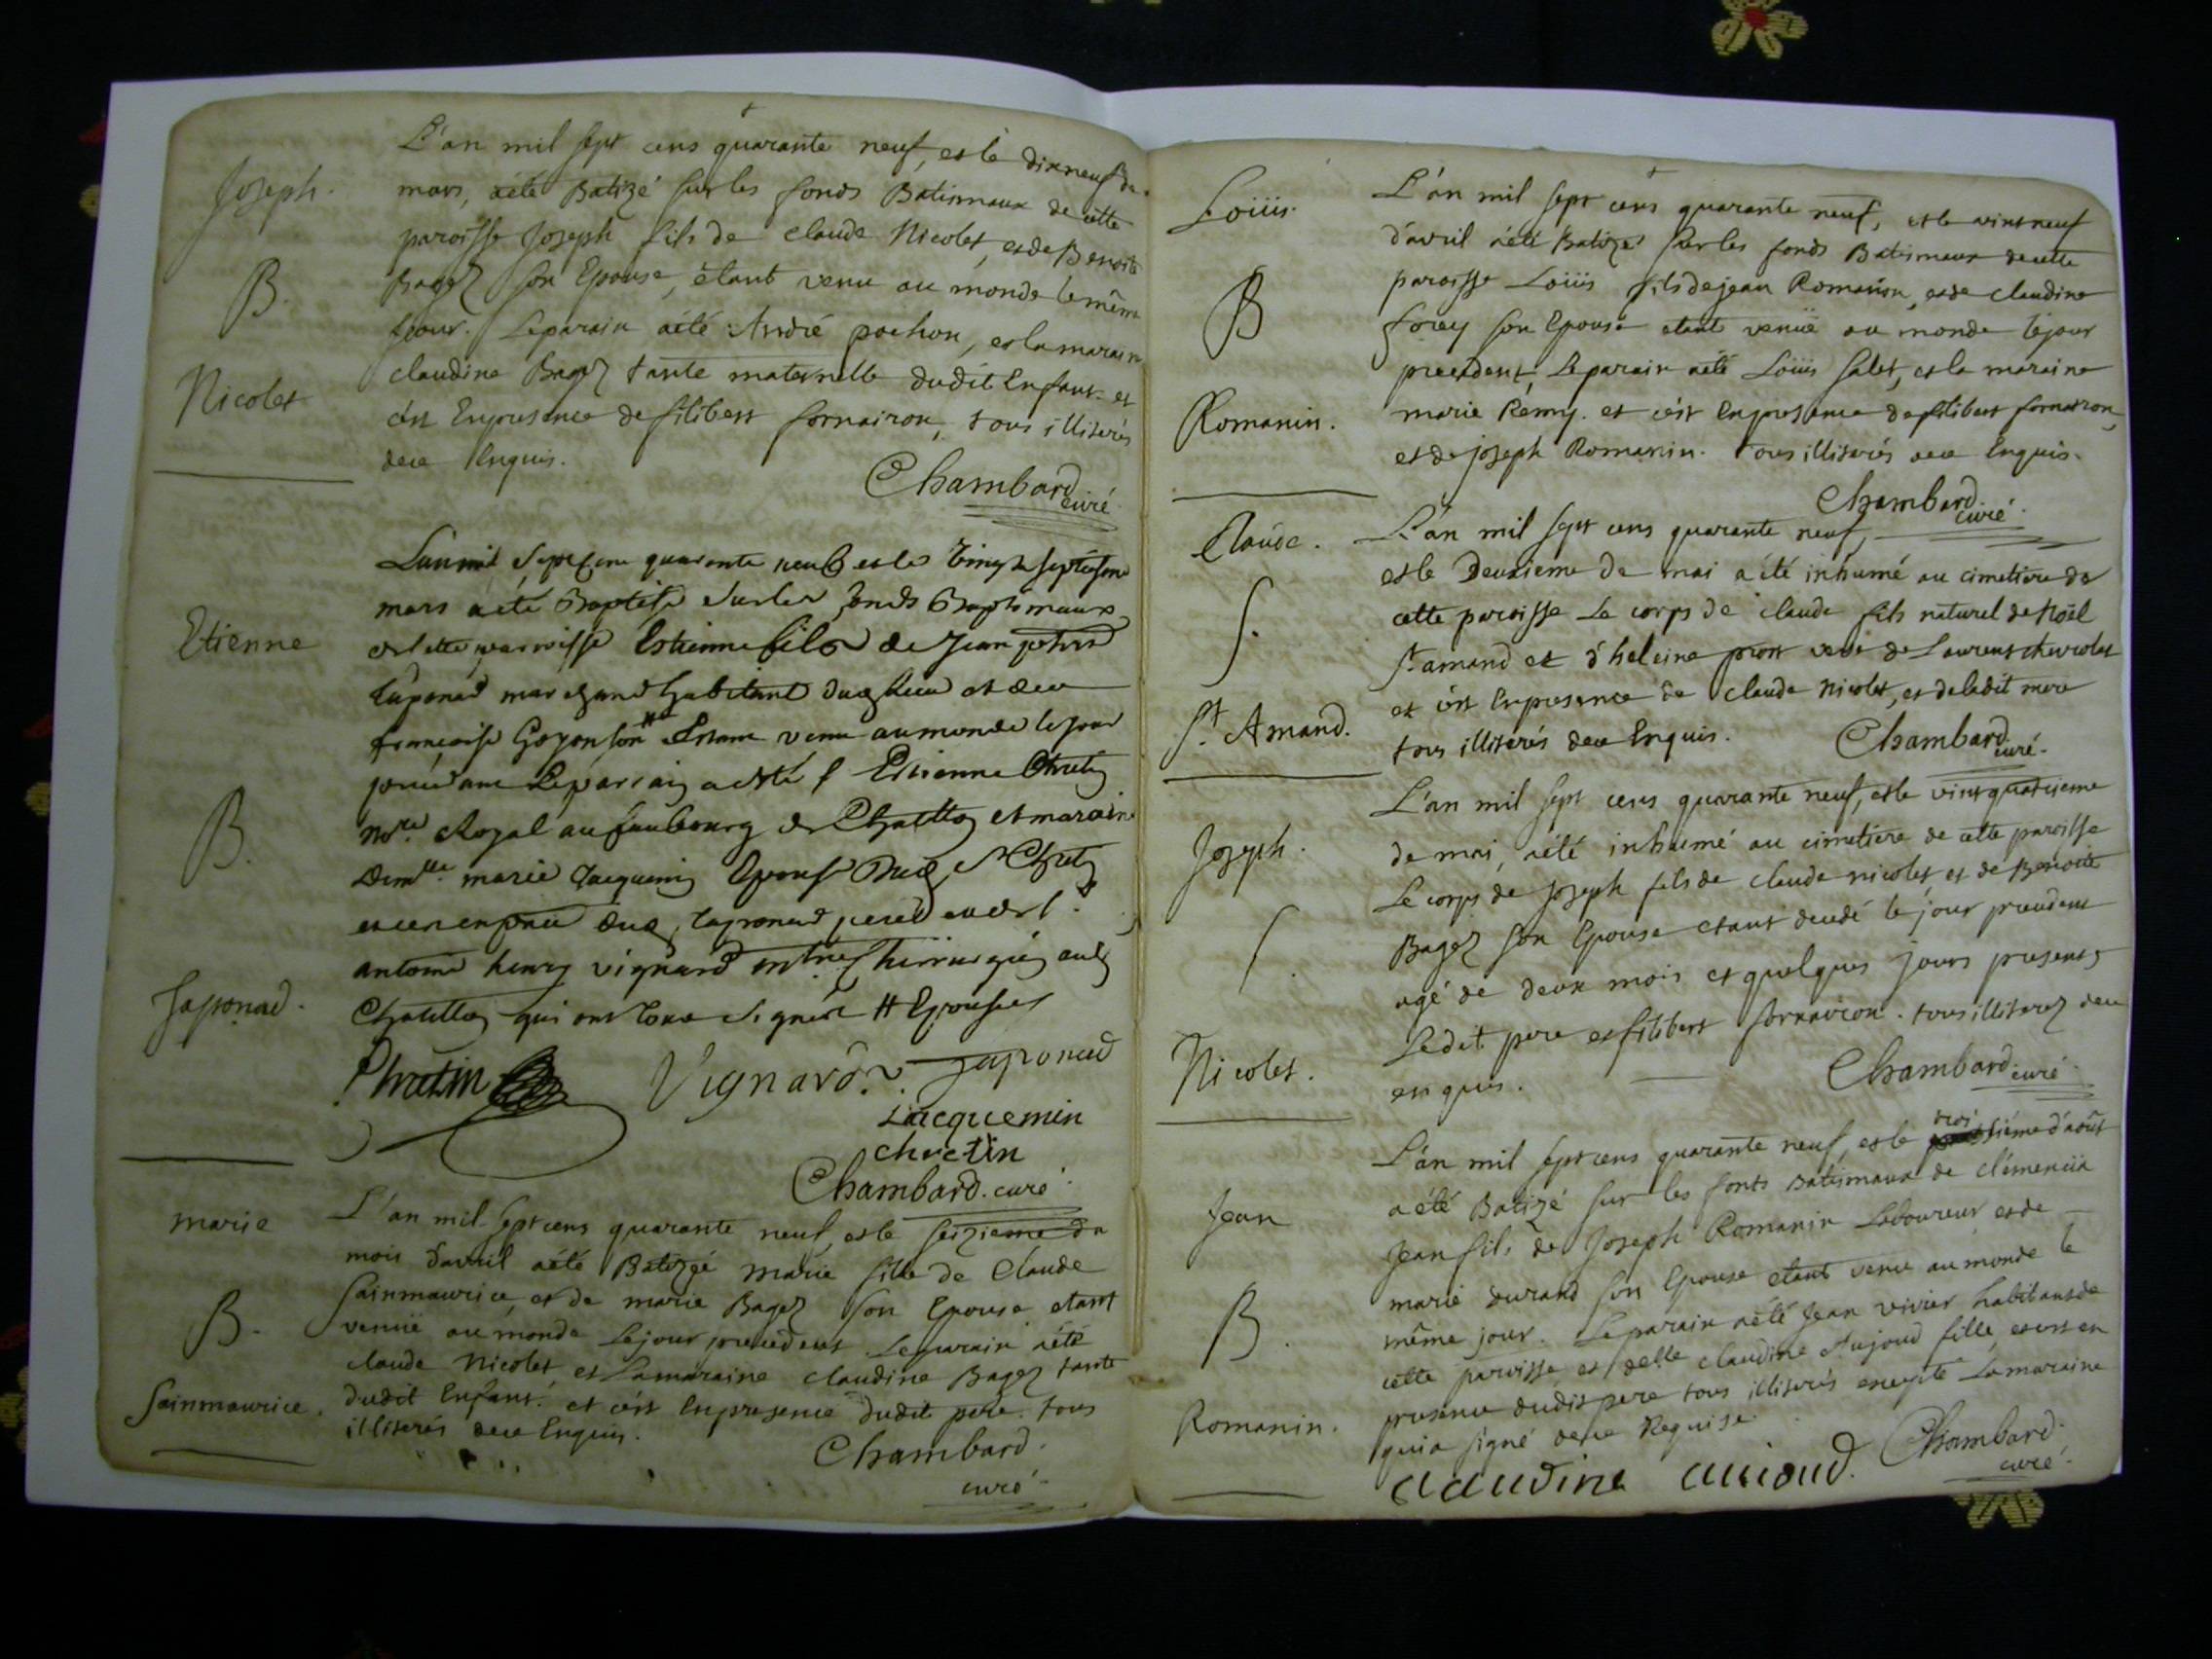 Joseph.
B.
Nicolet
L'an mil sept cens quarante neuf, et le dixneuf de
mars, aété Batizé sur les fonds Batismaux de cette
paroisse Joseph fils de claude Nicolet, et de Benoite
Bagez son Epouse, étant venu au monde le même
jour. Le parain aété André pochon, et la maraine
claudine Bagez tante maternelle dudit Enfant. et
c'est Enpresence de filibert fornairon, tous illiterés
dece Enquis.
Chambard
curé
Etienne
B.
Japonad.
L'an mil sept cens quarante neuf et le vingt septiesme
mars a eté Baptisé sur les fonds Baptismaux
de cette parroisse Estienne fils de Jean
marchand habitant et de
françoise Goyon son # Estant venu au monde le jour
Le parrain a esté Estienne Chretin
No.re Royal au faubourg de Chatillon et maraine
Dem.lle marie Jacquemin Epouse Chretin
antoine henry vignard
Chatillon qui ont tous signés # Epouse
Chretin Vignard. Japonad
Jacquemin
chretin
Chambard. curé
marie
B.
Sainmaurice.
L'an mil sept cens quarante neuf, et le seizieme du
mois d'avril aété Batizée marie fille de Claude
Sainmaurice, et de marie Bagez son Epouse etant
venüe au monde Le jour precedent Le parain aété
claude Nicolet, et La maraine claudine Bagez tante
dudit Enfant. et c'est Enpresence dudit pere. tous
illiterés dece Enquis.
Chambard.
curé
Loüis.
B
Romanin.
L'an mil sept cens quarante neuf, et le vint neuf
d'avril aété Batizé sur les fonds Batismaux de cette
paroisse Loüis fils de jean Romanin, et de claudine
forey son Epouse etant venüe au monde le jour
precedent, Le parain aété Loüis Salet, et la maraine
marie Rémy. et c'est Enpresence de filibert fornairon,
et de joseph Romanin. Tous illiterés dece Enquis.
Chambard
curé
Claude.
S.
St. Amand.
L'an mil sept cens quarante neuf,
et le Deuxieme de mai a été inhumé au cimetiere de
cette paroisse Le corps de claude fils naturel de Noël
St. amand et d'heleine de Laurent chevrolet
et c'est Enpresence de claude Nicolet, et de ladit mere
tous illiterés dece Enquis.
Chambard
curé.
Joseph.
S.
Nicolet.
L'an mil sept cens quarante neuf, et le vint quatrieme
de mai, aété inhumé au cimetiere de cette paroisse
Le corps de Joseph fils de claude nicolet et de Benoite
Bagez son Epouse etant decedé le jour precedent
agé de deux mois et quelques jours presents
Ledit pere et filibert fornairon. tous illiterez dece
enquis.
Chambard. curé
Jean
B.
Romanin.
L'an mil sept cens quarante neuf, et le troisiéme d'août
a été Batizé sur les fonts Batismaux de clémencia
Jean fils de Joseph Romanin Laboureur et de
marie durand son Epouse etant venu au monde le
même jour. Le parain aété Jean vivier habitant de
cette paroisse, et delle claudine Aujoud fille, et c'est en
presence dudit pere tous illiterés excepte La maraine
qui a signé dece Requise.
claudine auioud.
Chambard.
curé.